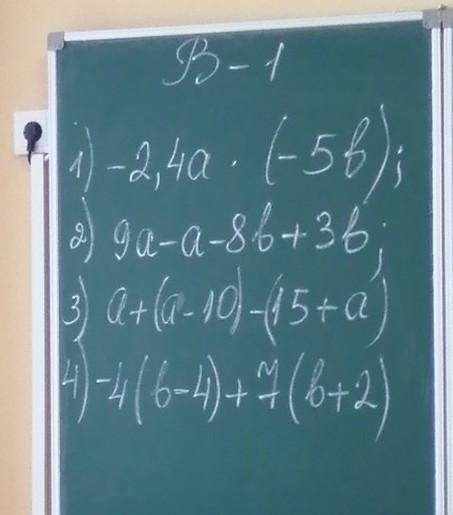 В-1
1) -2,4a · (-5b);
2) 9a-a-8b+3b;
3) a+(a-10)-(15+a)
4) -4(b-4)+7(b+2)